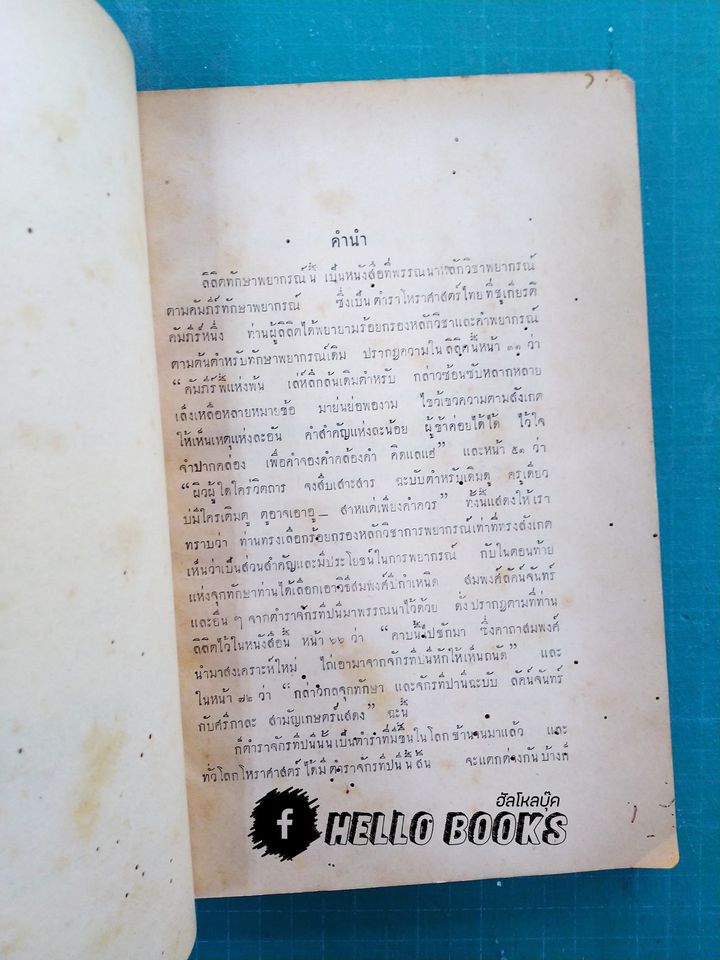 คำนำ
ลิลิตทักษาพยากรณ์นี้ เป็นหนังสือที่พรรณนาหลักวิชาพยากรณ์
ตามคัมภีร์ทักษาพยากรณ์ ซึ่งเป็นตำราโหราศาสตร์ไทยที่ชูเกียรติ
คัมภีร์หนึ่ง ท่านผู้ลิลิตได้พยายามร้อยกรองหลักวิชาและคำพยากรณ์
ตามต้นตำหรับทักษาพยากรณ์เดิม ปรากฏความในลิลิตนี้หน้า ๓๑ ว่า
“คัมภีร์พี้แห่งพ้น เล่ห์ลึกล้นเดิมตำหรับ กล่าวซ้อนซับหลากหลาย
เล็งเหลือหลายหมายข้อ มาย่นย่อพองาม ไขว้เขวความตามสังเกต
ให้เห็นเหตุแห่งละอัน คำสำคัญแห่งละน้อย ผู้ช้าค่อยได้ได้ ไว้ใจ
จำปากคล่อง เพื่อคำจองคำคล้องคำ คิดแลแฮ่” และหน้า ๕๑ ว่า
“ผิวผู้ใดใคร่วิตถาร จงสืบเสาะสาร ฉะบับตำหรับเดิมดู ครูเดียว
บ่มีใครเติมตู ตูอาจเอาอู_ สาหแต่เพียงคำควร” ทั้งนี้แสดงให้เรา
ทราบว่า ท่านทรงเลือกร้อยกรองหลักวิชาการพยากรณ์เท่าที่ทรงสังเกต
เห็นว่าเป็นส่วนสำคัญและมีประโยชน์ในการพยากรณ์ กับในตอนท้าย
แห่งจุกทักษาท่านได้เลือกเอาวิธีสมพงศ์ปีกำเหนิด สมพงศ์ลัคน์จันทร์
และอื่น ๆ จากตำราจักรทีปนีมาพรรณนาไว้ด้วย ดั่งปรากฏตามที่ท่าน
ลิลิตไว้ในหนังสือนี้ หน้า ๖๖ ว่า “คาบนี้ไปชักมา ซึ่งคาถาสมพงศ์
นำมาสงเคราะห์ใหม่ ไถ่เอามาจากจักรทีปนีหักให้เห็นถนัด” และ
ในหน้า ๗๒ ว่า “กล่าวกลจุกทักษา และจักรทีปานีฉะบับ ลัคน์จันทร์
กับศรีกาละ สามัญเกษตร์แสดง” ฉะนี้
ก็ตำราจักรทีปนีนั้นเป็นตำราที่มีขึ้นในโลกช้านานมาแล้ว และ
ทั่วโลกโหราศาสตร์ได้มีตำราจักรทีปนีนี้สิ้น จะแตกต่างกันบ้างก็
ฮัลโหลบุ๊ค
f HELLO BOOKS